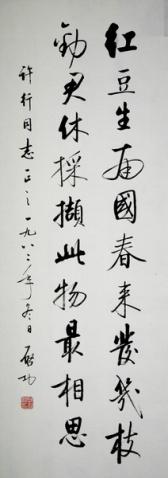 红豆生南國春来发幾枝
勸君休採擷此物最相思
许行同志正之一九八二年冬日 启功